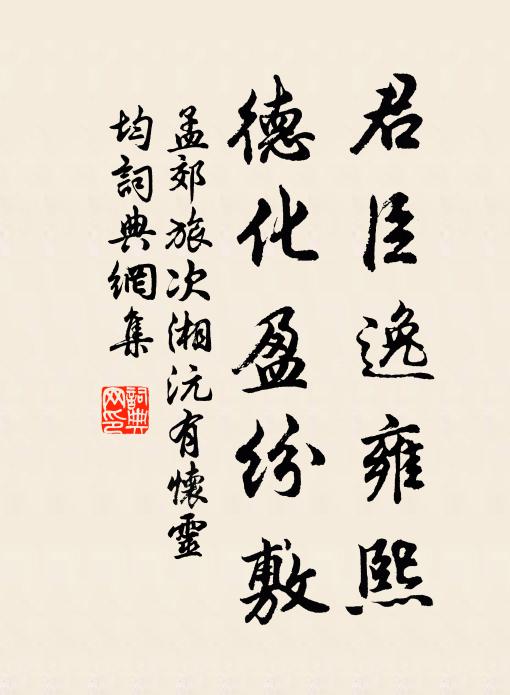 君臣逸雍熙
德化盈紛敷
孟郊旅次湘沅有懷靈
均詞典網集
詞典
网印